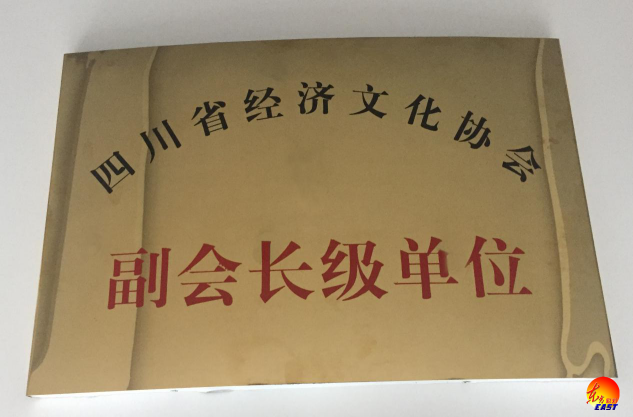 四川省经济文化协会
副会长级单位
EAST